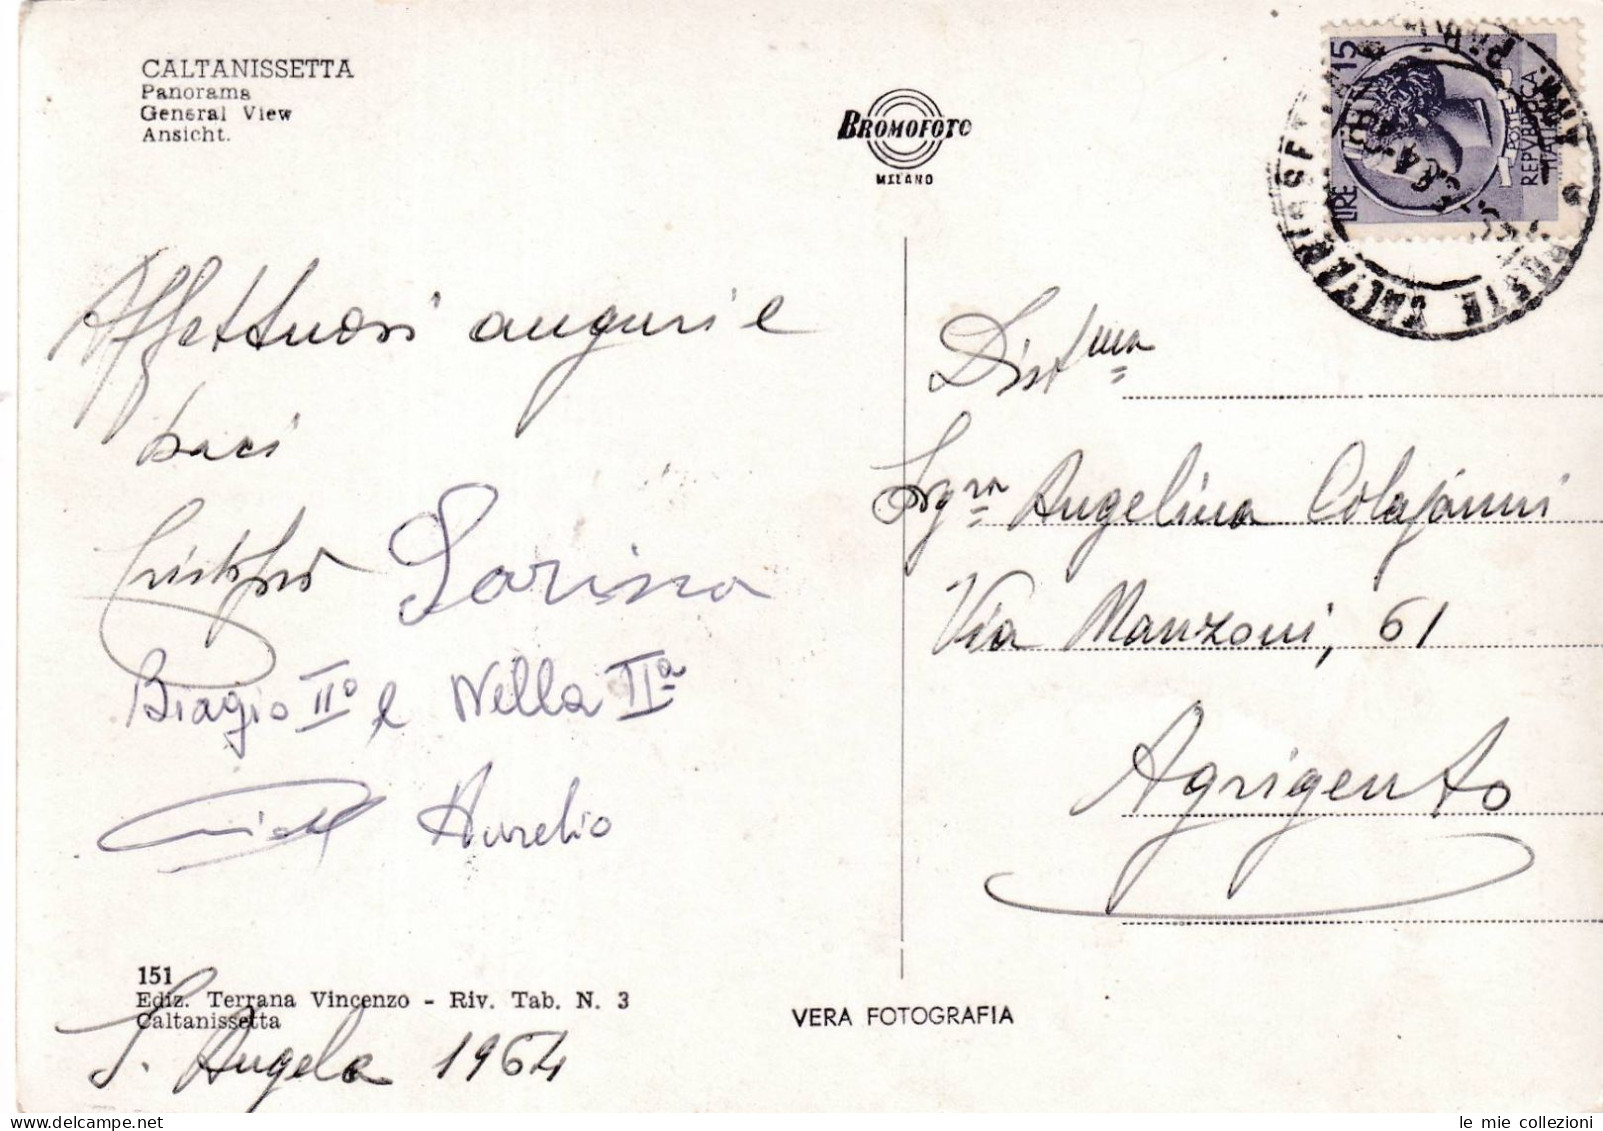 CALTANISSETTA
Panorama
General View
Ansicht.
BROMOFOTO
MILANO
LIRE 15
POSTE
REPVBBLICA
ITALIANA
Affettuosi auguri e
baci
Cristoforo Larissa
Biagio IIº e Nella IIª
Aurelio
151
Ediz. Terrana Vincenzo - Riv. Tab. N. 3
Caltanissetta
S. Angela 1964
VERA FOTOGRAFIA
Distma
Sigra Angelina Colajanni
Via Manzoni, 61
Agrigento
le mie collezioni